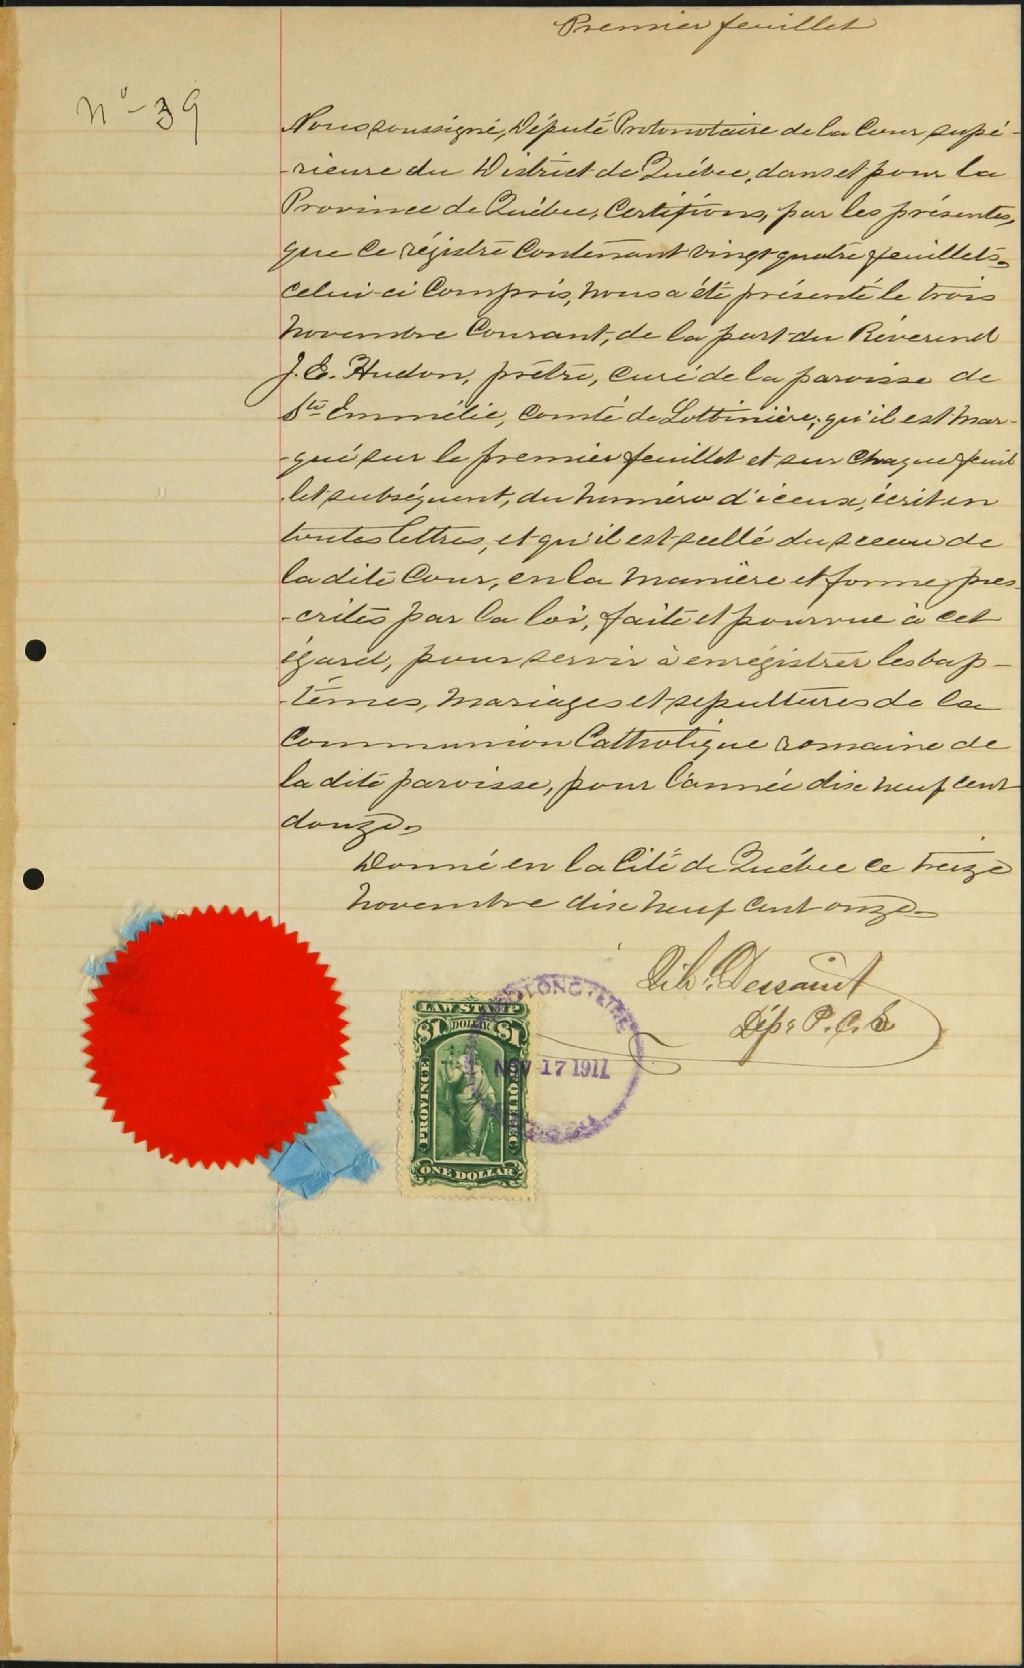 Premier feuillet
No 39
Nous soussigné, Député Protonotaire de la Cour supé-
-rieure du District de Québec, dans et pour la
Province de Québec, Certifions, par les présentes,
que ce régistre contenant vingt quatre feuillets
celui-ci compris, nous a été présenté le trois
novembre courant, de la part du Révérend
J. E. Hudon, prêtre, curé de la paroisse de
Ste Emmélie, comté de Lotbinière; qu'il est mar-
-qué sur le premier feuillet et sur chaque feuil
let subséquent, du numéro d'iceux, écrit en
toutes lettres, et qu'il est scellé du sceau de
la dite Cour, en la manière et forme pres-
-crites par la loi, faite et pourvue à cet
égard, pour servir à enrégistrer les bap-
-têmes, mariages et sépultures de la
Communion Catholique romaine de
la dite paroisse, pour l'année dix neuf cent
douze.
Donné en la Cité de Québec ce treize
novembre dix neuf cent onze.
Dessaint
Dép: P. C. S.
LAW STAMP
$1 DOLLAR $1
PROVINCE
OF QUEBEC
ONE DOLLAR
PROTONOTAIRE
NOV 17 1911
QUEBEC